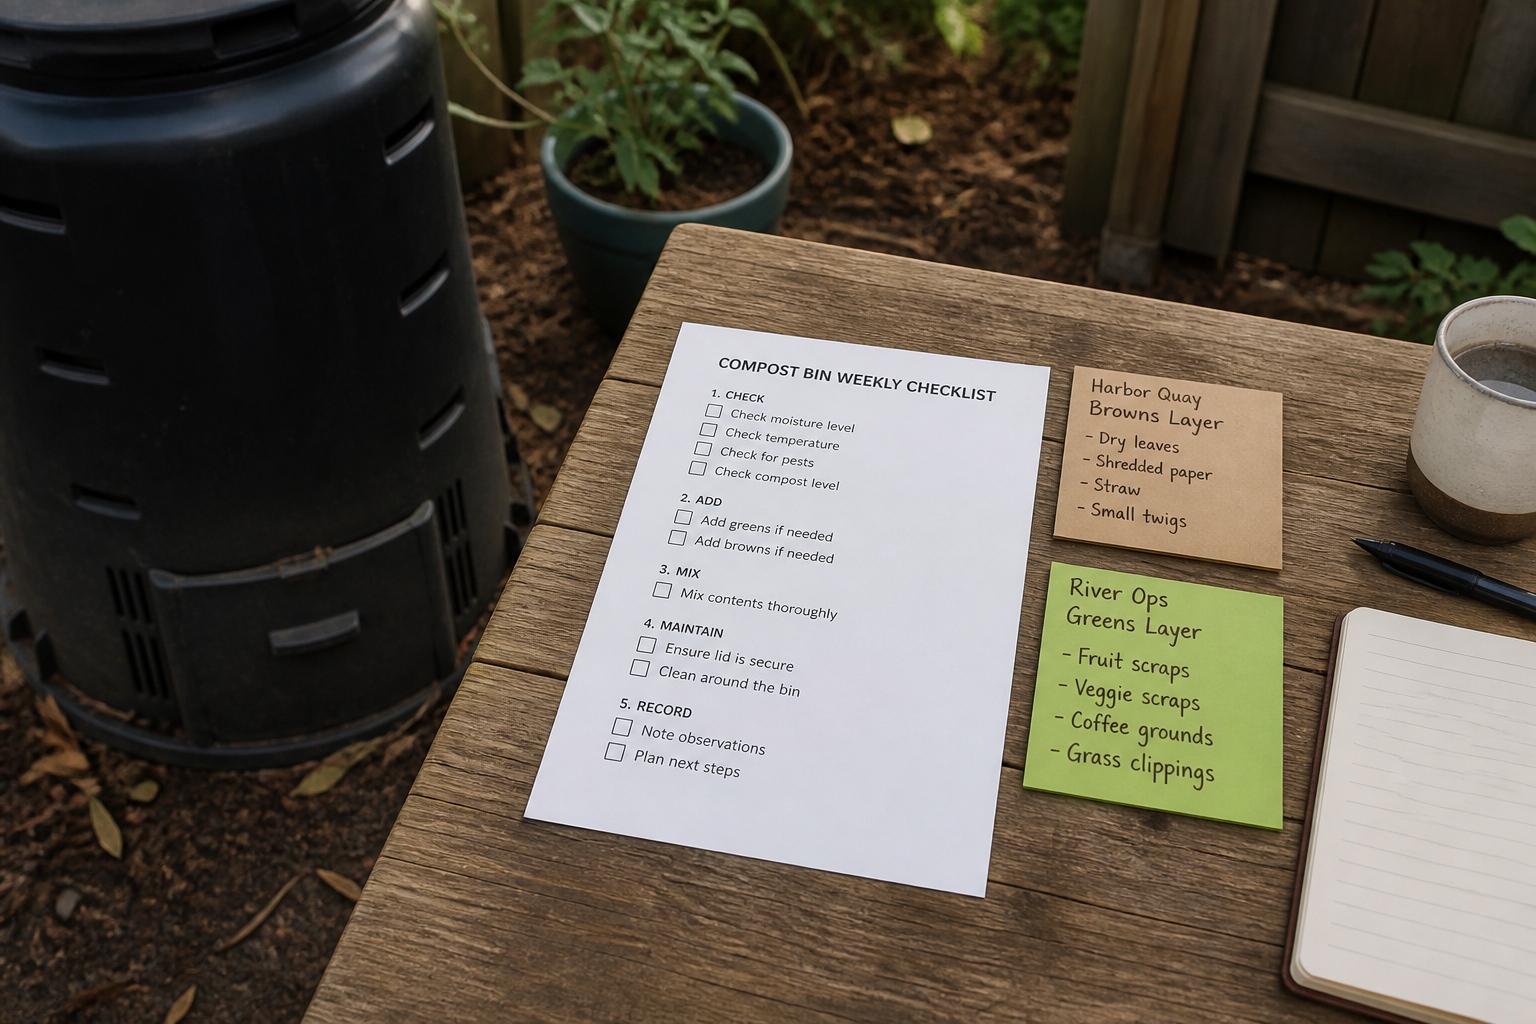 COMPOST BIN WEEKLY CHECKLIST
1. CHECK
Check moisture level
Check temperature
Check for pests
Check compost level
2. ADD
Add greens if needed
Add browns if needed
3. MIX
Mix contents thoroughly
4. MAINTAIN
Ensure lid is secure
Clean around the bin
5. RECORD
Note observations
Plan next steps
Harbor Quay
Browns Layer
- Dry leaves
- Shredded paper
- Straw
- Small twigs
River Ops
Greens Layer
- Fruit scraps
- Veggie scraps
- Coffee grounds
- Grass clippings